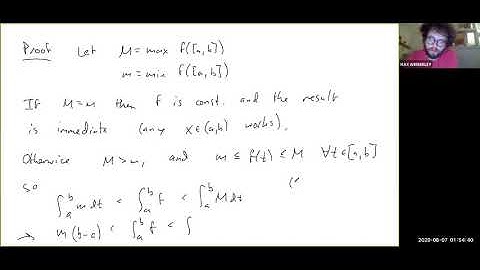 Proof Let M = max f([a,b])
m = min f([a,b])
If M=m then f is const. and the result
is immediate (any x∈(a,b) works).
Otherwise M>m, and m ≤ f(t) ≤ M ∀t∈[a,b]
so
∫_a^b m dt < ∫_a^b f < ∫_a^b M dt
→ m(b-a) < ∫_a^b f < ∫
MAX WEISSELEY
2020-08-07 01:54:40